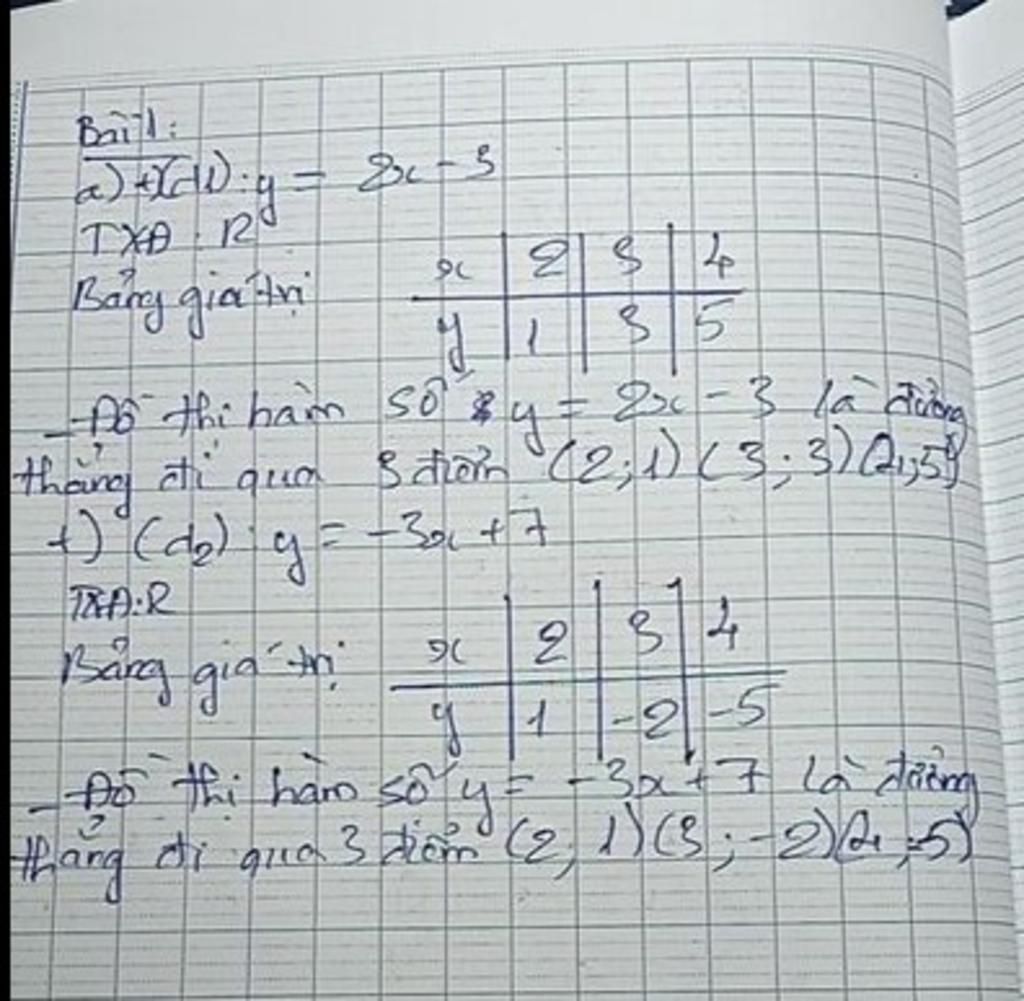 Bài 1:
a) +) (d1): y = 2x - 3
TXĐ: R
Bảng giá trị
x 2 3 4
y 1 3 5
- Đồ thị hàm số y = 2x - 3 là đường
thẳng đi qua 3 điểm (2; 1) (3; 3) (4; 5)
+) (d2): y = -3x + 7
TXĐ: R
Bảng giá trị
x 2 3 4
y 1 -2 -5
- Đồ thị hàm số y = -3x + 7 là đường
thẳng đi qua 3 điểm (2; 1) (3; -2) (4; -5)